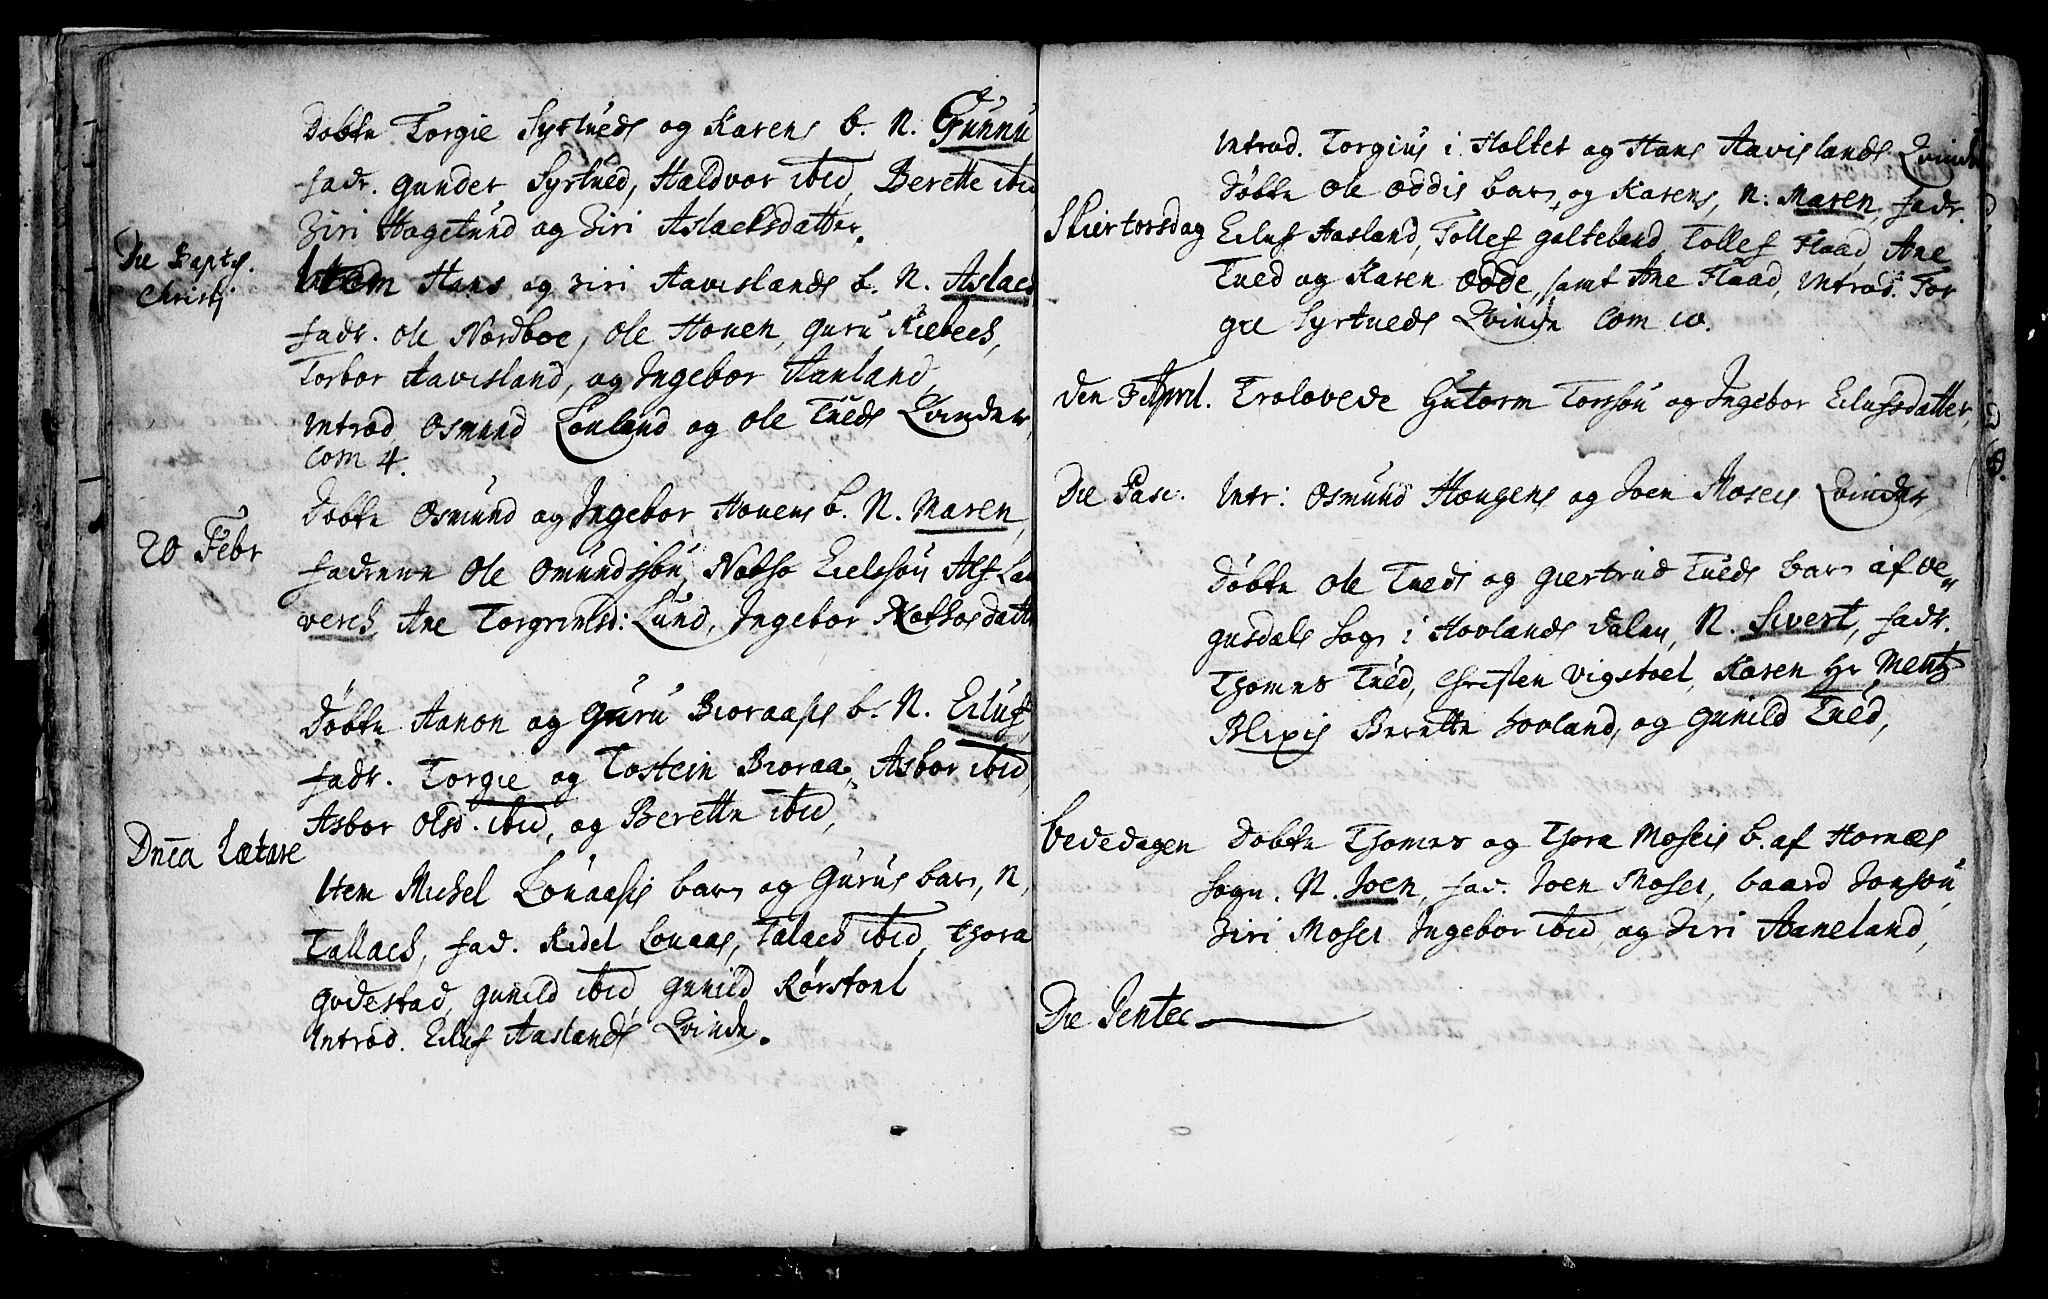 Døbte Torgie Syrtueds og Karens b. N. Gunnu
fadr. Gunder Syrtued, Haldvor ibid, Berette ibid
Siri Hagelund og Siri Aslachsdatter.
Die Baptis.
Christi
Item Hans og Siri Aavislands b. N. Aslach
fadr. Ole Nordboe, Ole Honen, Guru Kiebech,
Torbor Aavisland, og Ingebor Aanland,
Introd. Osmund Lonland og Ole Tueds Qvinder,
Com 4.
20 Febr
Døbte Osmund og Ingebor Honens b. N. Maren,
fadrene Ole Omundssøn, Notho Eielssøn Alf Lau
verch, Ane Torgrimsd: Lund, Ingebor Nothosdatt
Døbte Aanon og Guru Bioraasis b. N. Eiluf,
fadr. Torgie og Tostein Bioraa, Asbor ibid,
Asbor Olsd. ibid, og Berette ibid,
Dnica Lætare
Item Michel Lonaasis barn og Gurus barn, N,
Tallach, fad. Kidel Lonaas, Talach ibid, Thora
Godestad, Gunild ibid Gunild Kørstoel
Introd. Eiluf Aaslands Qvinde.
Introd. Torgius i Holtet og Hans Aavislands Qvinde
Skiertorsdag
Døbte Ole Oddis barn, og Karens, N: Maren fadr.
Eiluf Aasland, Tollef Galteland, Tollef Flaad, Ane
Tued og Karen Odde, samt Ane Flaad, Introd. Tor
gie Syrtueds Qvinde Com 10.
Den 7 April. Trolovede Gutorm Torssøn og Ingebor Eilufsdatter,
Die Pasc. Intr: Osmund Haugens og Joen Moseis Qvinder
Døbte Ole Tueds og Giertrud Tueds barn af Ve„
gusdals Sogn i Hovlands dalen, N. Sivert, fadr.
Thomes Tued, Christen Vigstoel, Karen Hr Mentz
Blixis Berette Hovland, og Gunild Tued,
Bededagen Døbte Thomes og Thora Moseis b. af Hornæs
Sogn. N. Joen, fad. Joen Mosei, Baard Jonsøn,
Siri Mosei Ingebor ibid, og Siri Aaneland,
Die Pentec